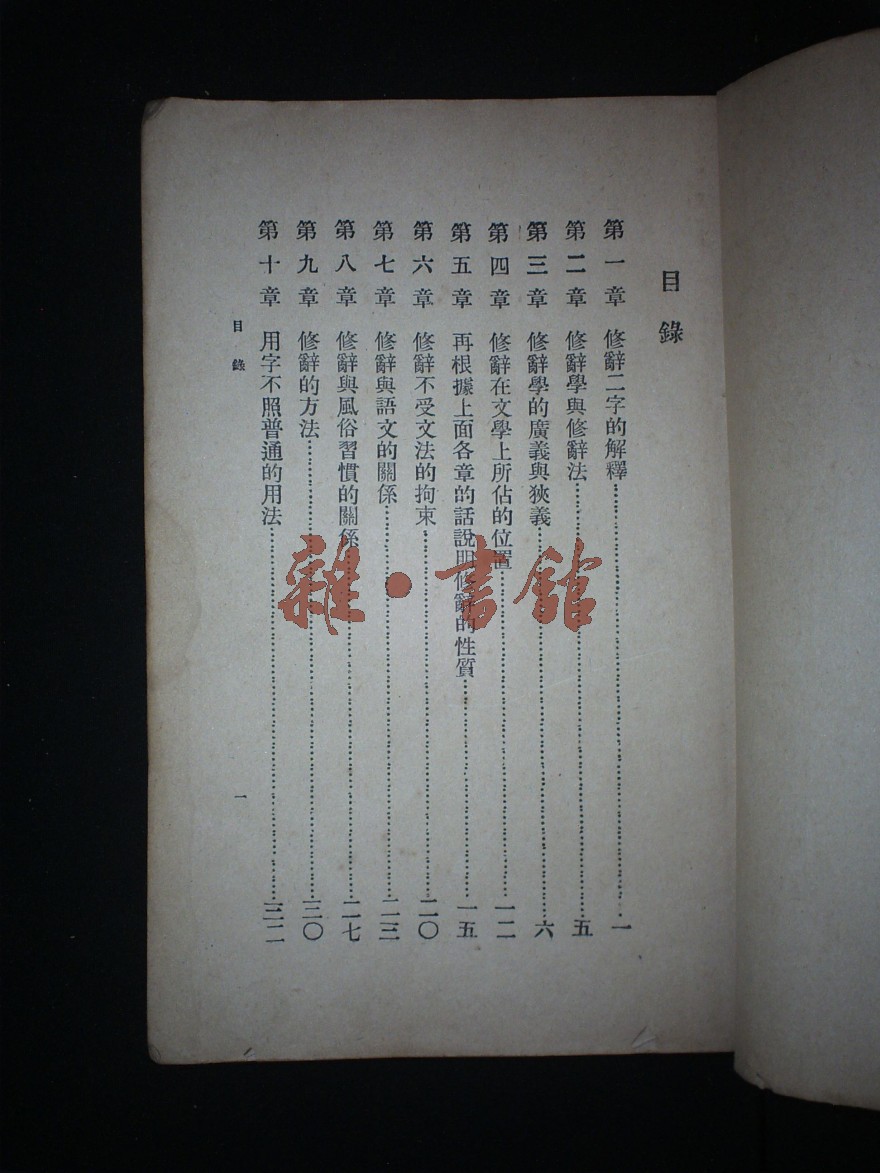 目錄
第一章 修辭二字的解釋……一
第二章 修辭學與修辭法……五
第三章 修辭學的廣義與狹義……六
第四章 修辭在文學上所佔的位置……一二
第五章 再根據上面各章的話說明修辭的性質……一五
第六章 修辭不受文法的拘束……二〇
第七章 修辭與語文的關係……二三
第八章 修辭與風俗習慣的關係……二七
第九章 修辭的方法……三〇
第十章 用字不照普通的用法……三二
目錄
一
雜·書館